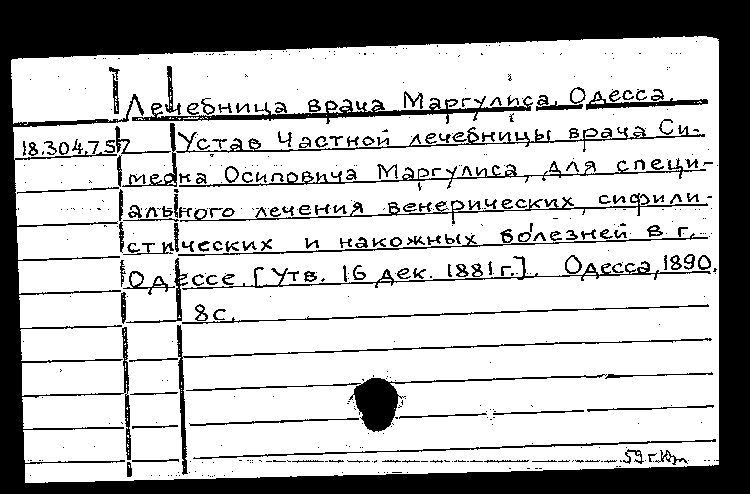 Лечебница врача Маргулиса. Одесса.
18.304.7.57 Устав Частной лечебницы врача Си-
меона Осиповича Маргулиса, для специ-
ального лечения венерических, сифили-
стических и накожных болезней в г.
Одессе. [Утв. 16 дек. 1881 г.]. Одесса, 1890.
8 с.
59 г.